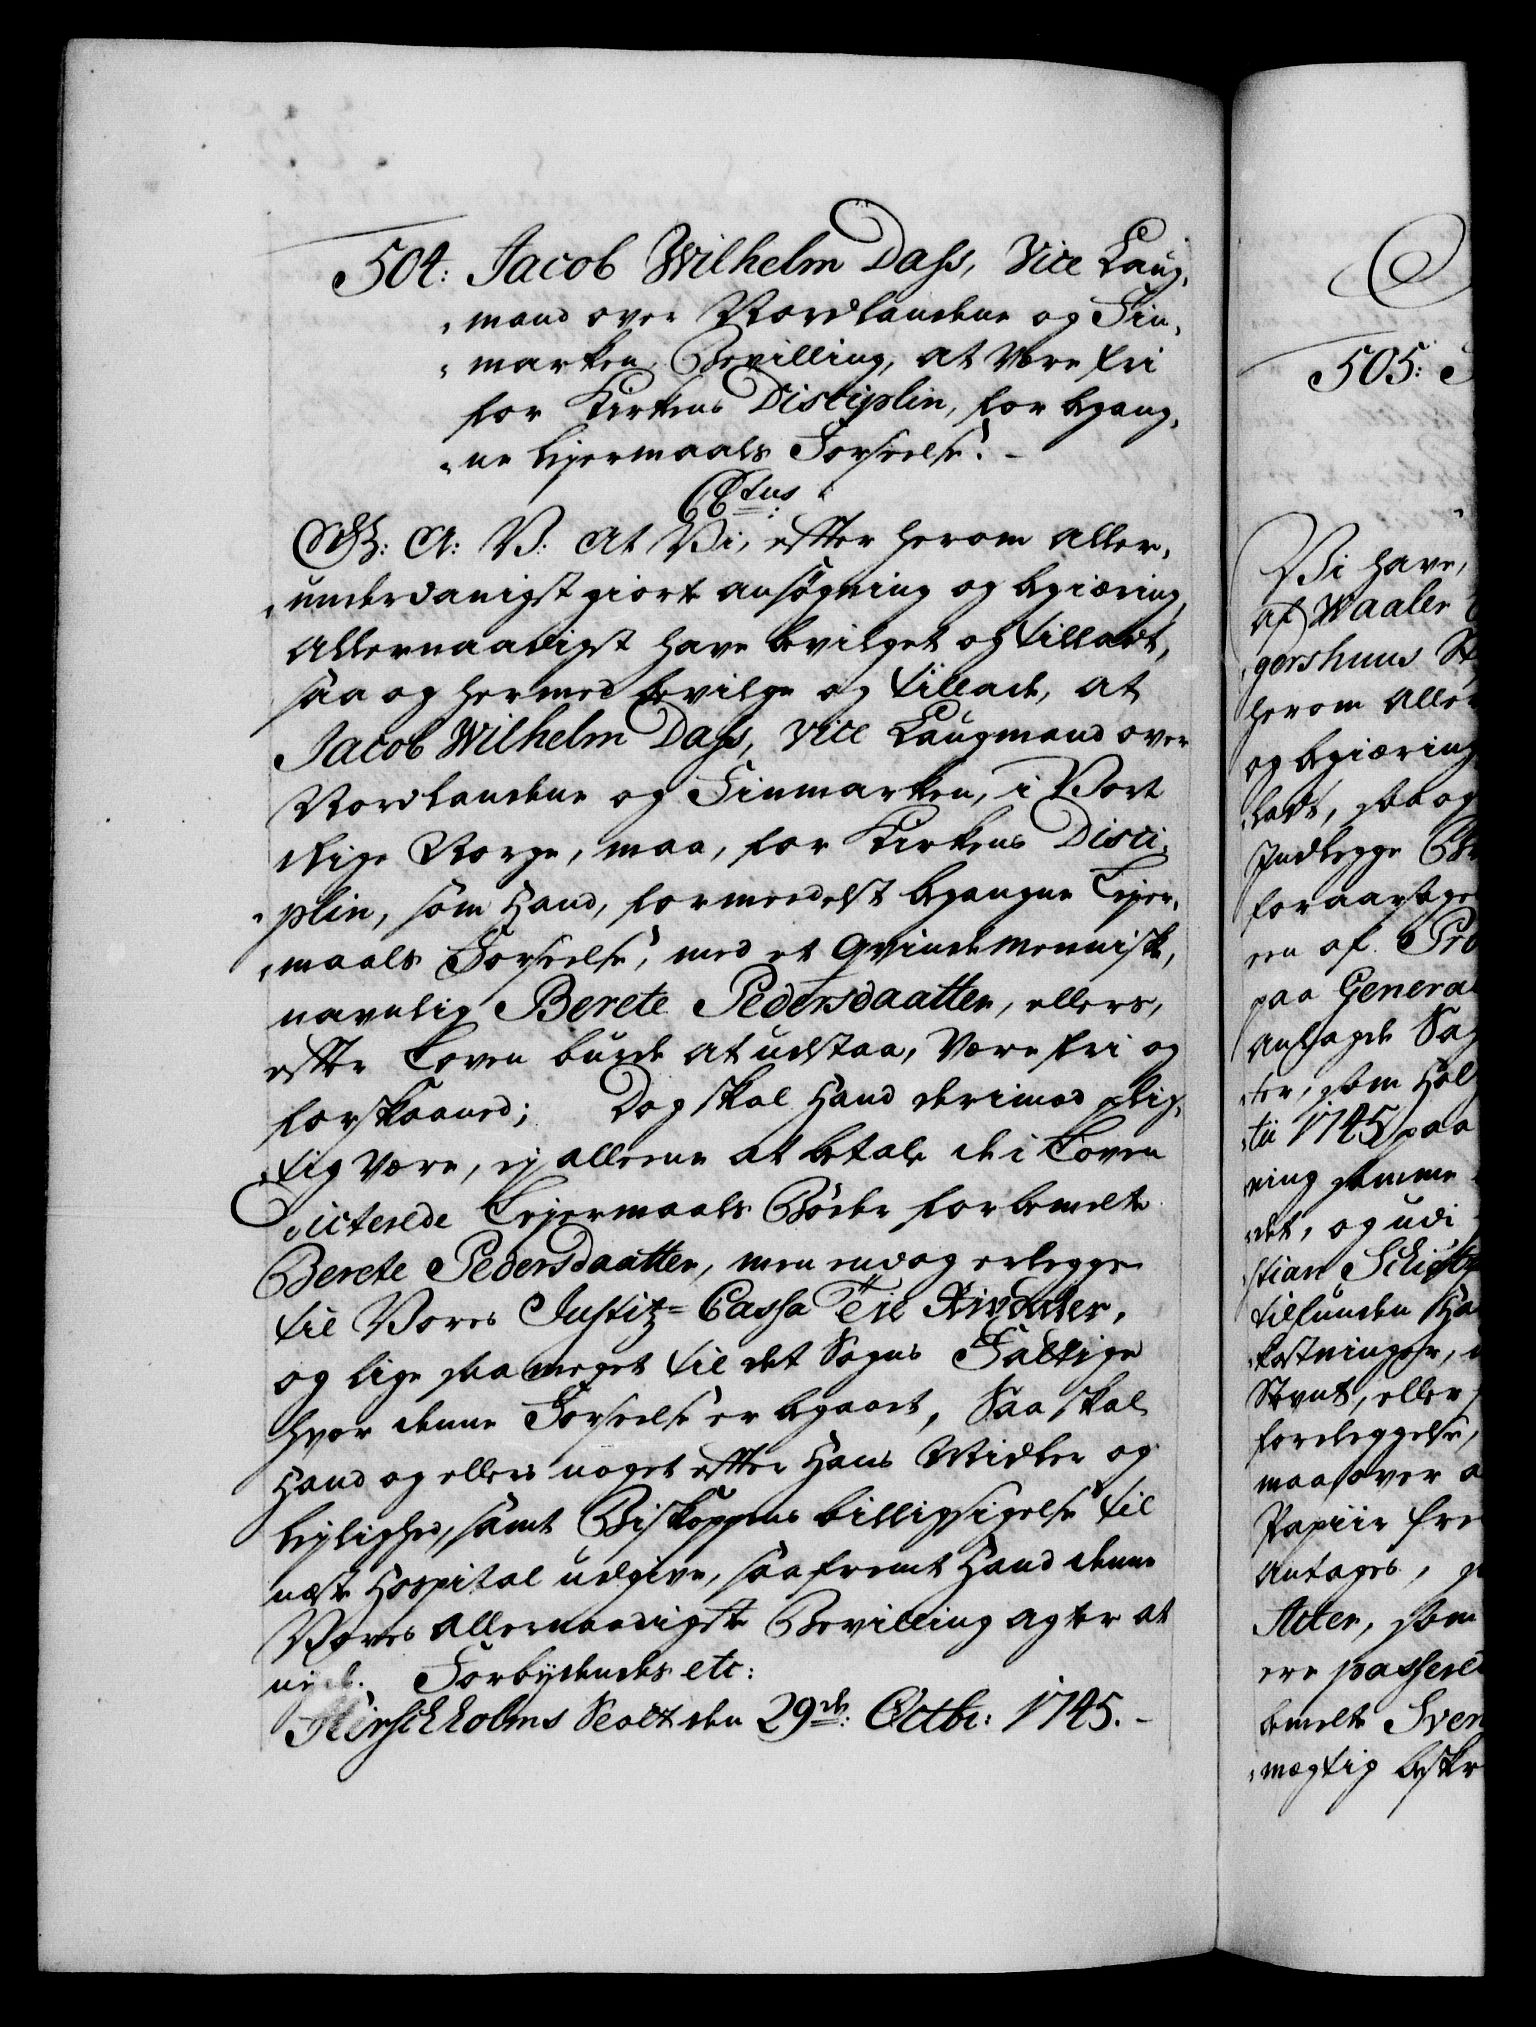 504: Jacob Wilhelm Dass, Vice Laug,
„mand over Nordlandene og Fin,
„marken, Bevilling, at være fri
for Kirkens Disciplin, for begang,
„ne Lejermaals Forseelse. –
C6tus
G: A: V: At Vi, efter herom aller,
„underdanigst giort ansøgning og begiæring,
allernaadigst have bevilget og tilladt,
saa og hermed bevilge og tillade, at
Jacob Wilhelm Dass, Vice Laugmand over
Nordlandene og Finmarken, i Vort
Rige Norge, maa, for Kirkens Disci,
„plin, som hand, formedelst begangne Lejer,
„maals Forseelse, med et Qvindemenniske,
navnlig Berete Pedersdaatter, ellers,
efter Loven burde at udstaa, være fri og
forskaaned; Dog skal hand derimod plig,
„tig være, ej alleene at betale de i Loven
dicterede Lejermaals Bøder for bemelte
Berete Pedersdaatter, men endog erlegge
til Vores Justitz-Cassa Tie Rixdaler,
og lige saa meget til det Sogns Fattige
hvor denne Forseelse er begaaet, Saa skal
hand og ellers noget efter hans Midler og
Lejlighed, samt Biskoppens billigsigelse til
næste Hospital udgive, saafremt hand denne
Vores allernaadigste Bevilling agter at
nyde. Forbydendes etc:
Hirschholms Slott den 29de: Octbr: 1745. –
505:
Vi have,
af Waaler
gershuus St
herom aller
og begiæring
„ladt, saa og
Indlegge
foraarsage
een af Pro
paa Genera
anlagde Sag
„ter, som hol
„tii 1745 paa
ning samme
„det, og udi
„stian
tilfunden Ha
kostninger,
Stvnt, eller
foreleggelse,
maa over a
Papiir fre
antages,
Acter, som
ere passere
bemelte Sven
„mægtig beskr